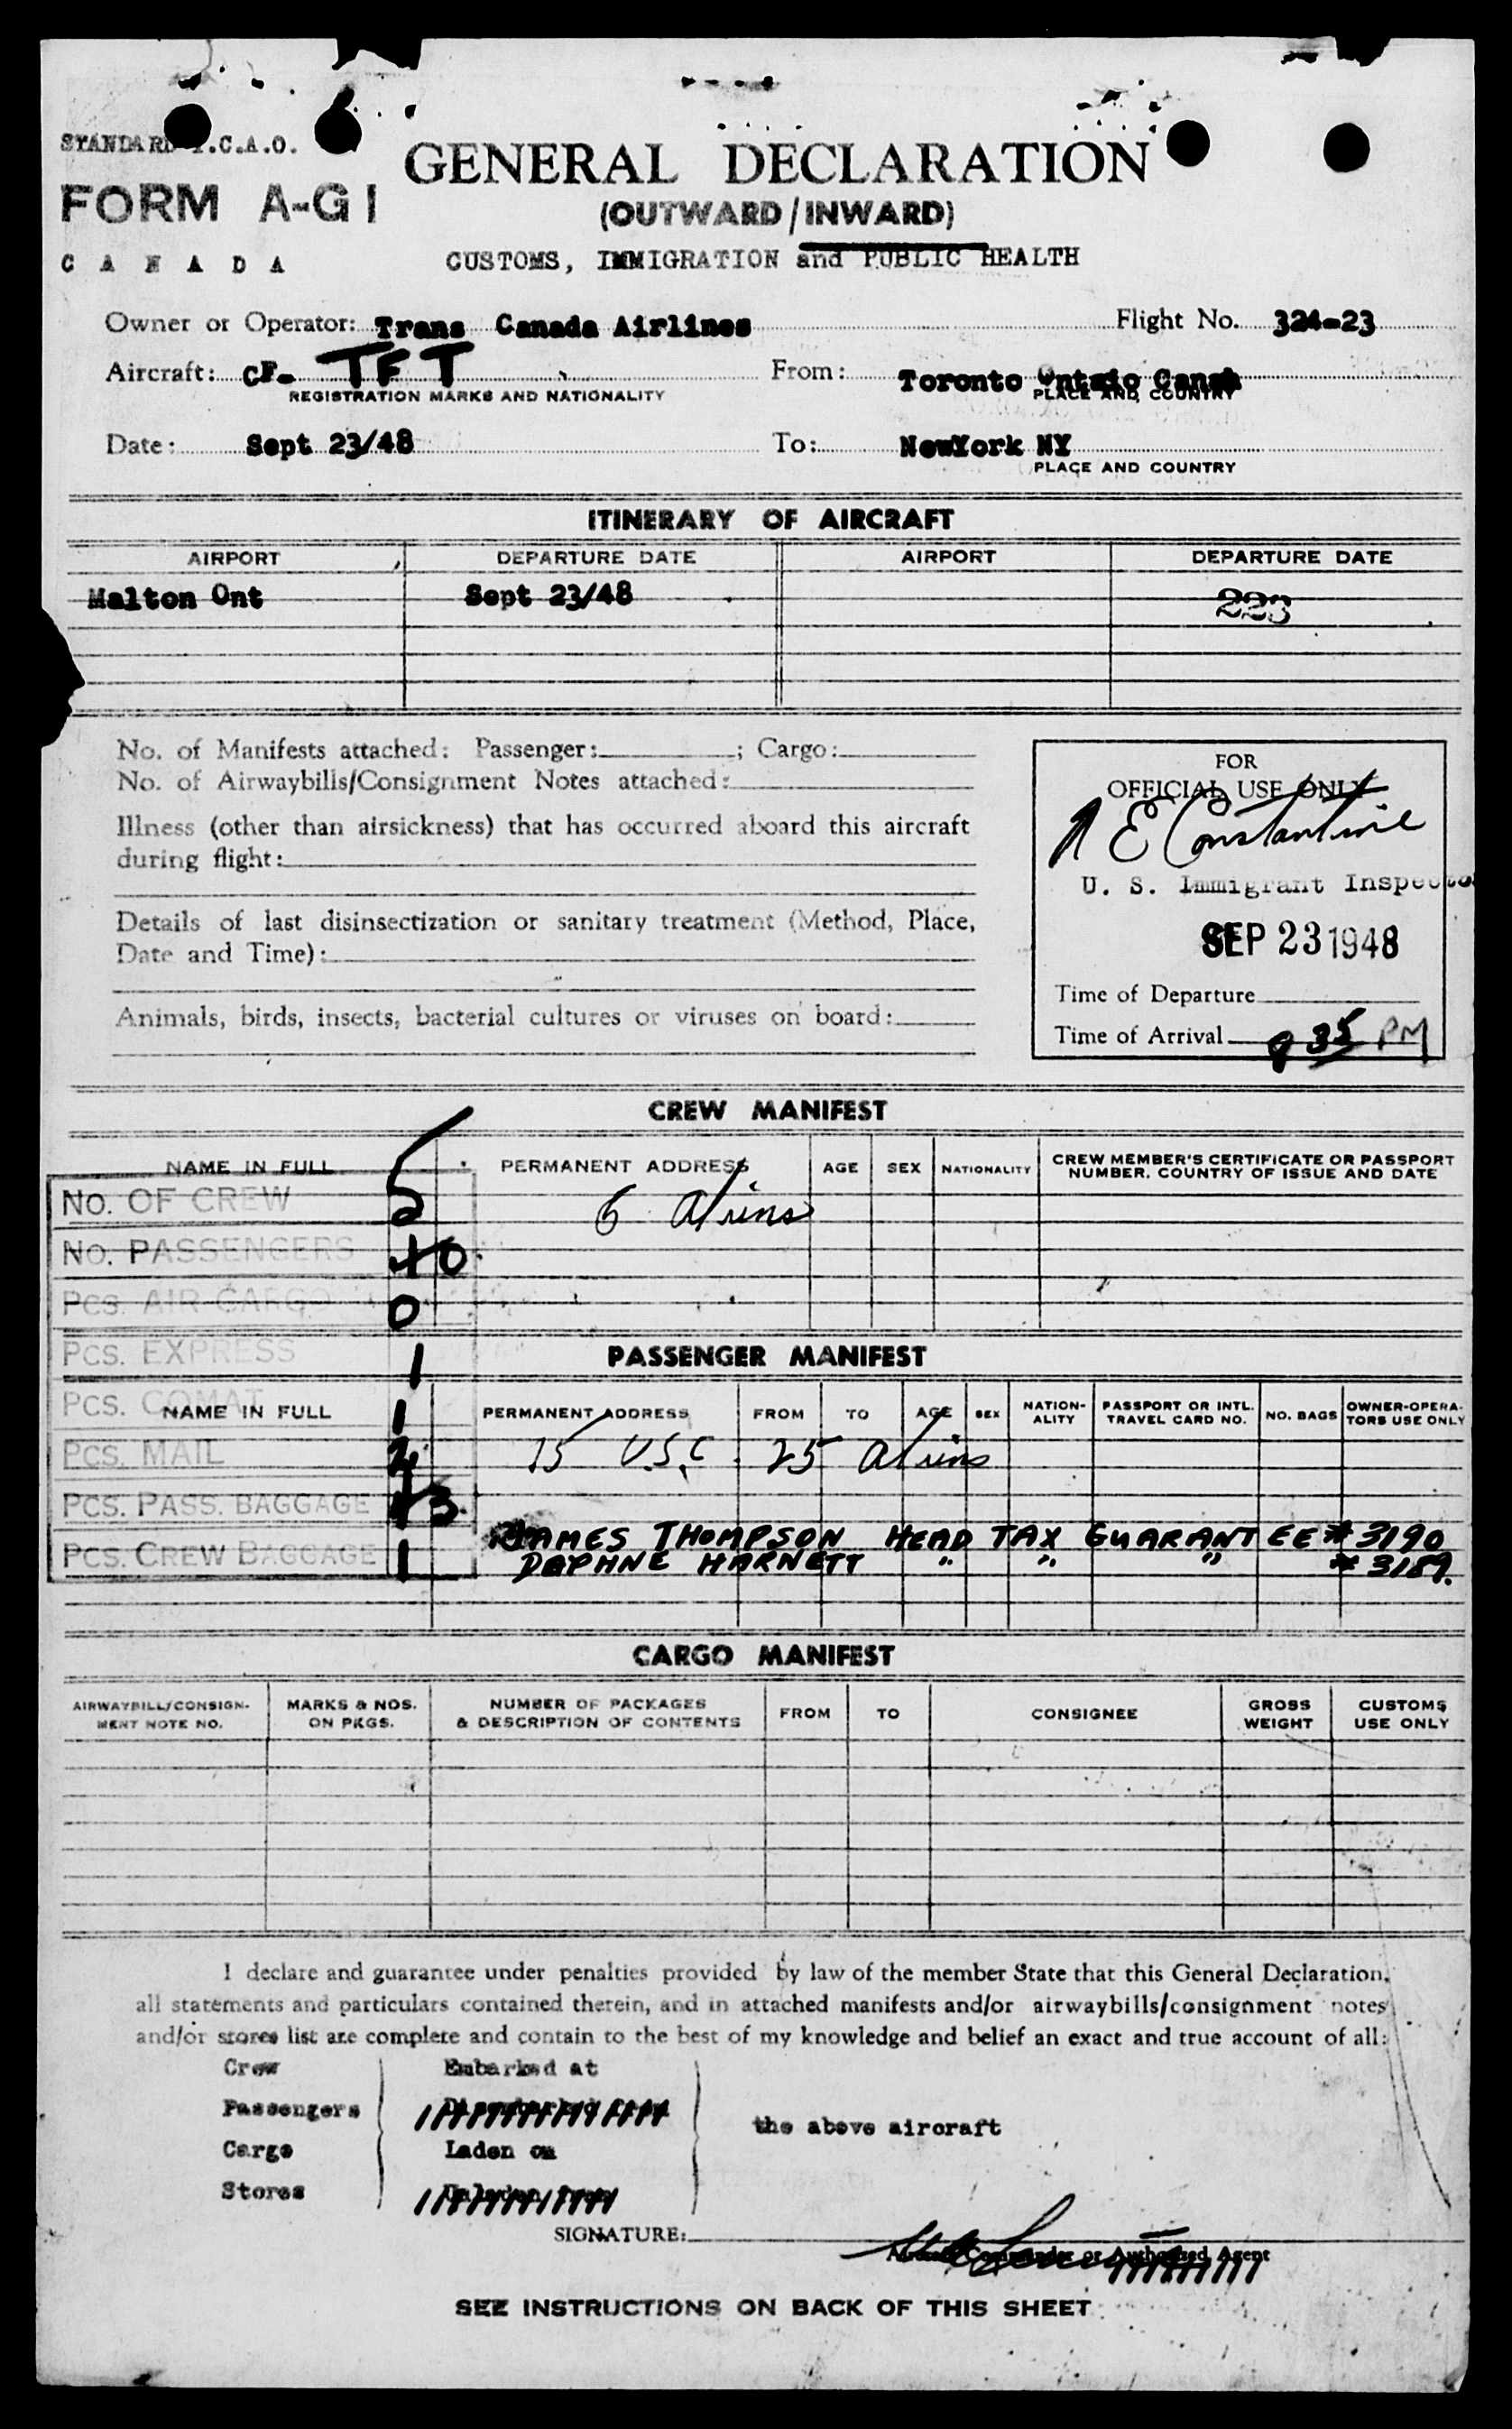 STANDARD I.C.A.O.
FORM A-G1
CANADA
GENERAL DECLARATION
(OUTWARD/INWARD)
CUSTOMS, IMMIGRATION and PUBLIC HEALTH
Owner or Operator: Trans Canada Airlines Flight No. 324-23
Aircraft: CF- TFT From: Toronto Ontaio Canah
REGISTRATION MARKS AND NATIONALITY PLACE AND COUNTRY
Date: Sept 23/48 To: NewYork NY
PLACE AND COUNTRY
ITINERARY OF AIRCRAFT
AIRPORT DEPARTURE DATE AIRPORT DEPARTURE DATE
Malton Ont Sept 23/48 223
No. of Manifests attached: Passenger: ; Cargo:
No. of Airwaybills/Consignment Notes attached:
Illness (other than airsickness) that has occurred aboard this aircraft
during flight:
Details of last disinsectization or sanitary treatment (Method, Place,
Date and Time):
Animals, birds, insects, bacterial cultures or viruses on board:
FOR
OFFICIAL USE ONLY
E Constantine
U. S. Immigrant Inspecto
SEP 23 1948
Time of Departure
Time of Arrival 9 35 PM
CREW MANIFEST
NAME IN FULL PERMANENT ADDRESS AGE SEX NATIONALITY CREW MEMBER'S CERTIFICATE OR PASSPORT
NUMBER, COUNTRY OF ISSUE AND DATE
No. OF CREW 5 6 Aliens
No. PASSENGERS 40
Pcs. AIR CARGO 0
Pcs. EXPRESS 1
PASSENGER MANIFEST
Pcs. COMAT 1
NAME IN FULL PERMANENT ADDRESS FROM TO AGE SEX NATION-
ALITY PASSPORT OR INTL.
TRAVEL CARD NO. NO. BAGS OWNER-OPERA-
TORS USE ONLY
Pcs. MAIL 2 15 U.S.C. 25 Aliens
Pcs. PASS. BAGGAGE 43
JAMES THOMPSON HEAD TAX GUARANTEE # 3190
Pcs. CREW BAGGAGE 1 DAPHNE HARNETT " " " # 3189.
CARGO MANIFEST
AIRWAYBILL/CONSIGN-
MENT NOTE NO. MARKS & NOS.
ON PKGS. NUMBER OF PACKAGES
& DESCRIPTION OF CONTENTS FROM TO CONSIGNEE GROSS
WEIGHT CUSTOMS
USE ONLY
I declare and guarantee under penalties provided by law of the member State that this General Declaration,
all statements and particulars contained therein, and in attached manifests and/or airwaybills/consignment notes
and/or stores list are complete and contain to the best of my knowledge and belief an exact and true account of all:
Crew Embarked at
Passengers
the above aircraft
Cargo Laden on
Stores
SIGNATURE:
Commander or Authorized Agent
SEE INSTRUCTIONS ON BACK OF THIS SHEET